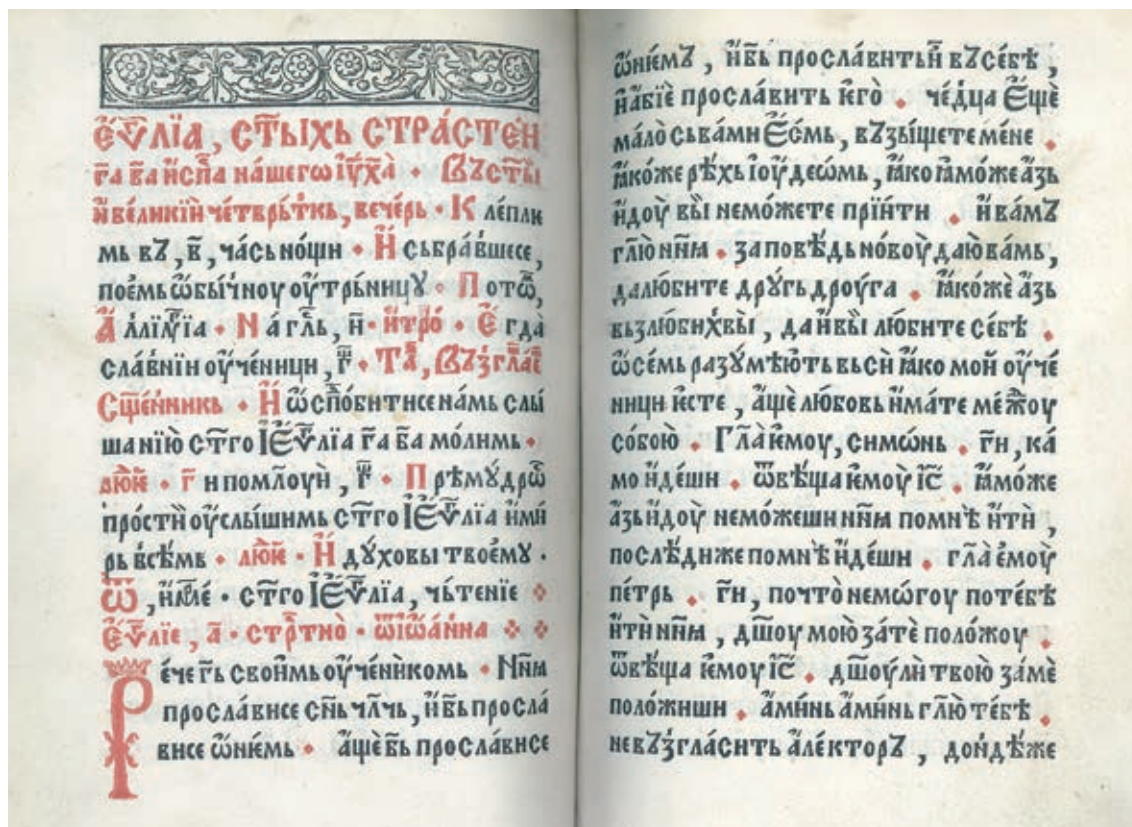 Е҆ѵ҃лїа, ст҃ыхь страстен
г҃а б҃а и҆сп҃а на́шегѡ і҆у҃ х҃а̀ · Въ ст҃ы
и҆ великїи че́тврь́ткь, ве́черь · К ле́пли
мь въ, в҃, ча́сь но́щи · И҆ сьбра́вшесе,
пое́мь ѡ҆бы́чноу оу҆́трьницꙋ · П отѡ҃,
А҆ ллїлꙋ́їа · N а́ гл҃ь, и҃ · и҆ тро́ · Е҆ гда̀
сла́внїи оу҆че́ници, г҃ · Та҃, Въ́згла҃
Сщ҃е́нникь · И҆ ѡ҆ спо҃битисе на́мь слы́
ша нїю ст҃го І҆Е҆ѵ҃лїа г҃а б҃а мо́лимь ·
лю́й · г҃ и помлоуи, г҃ · П рѣмꙋ́дрѡ
про́сти оу҆слы́шимь ст҃го І҆Е҆ѵ҃лїа и҆ ми́
рь всѣ́мь · лю́й · И҆ дꙋ́ховы твоемꙋ ·
Ѿ, и҆ѡ҃ле́ · ст҃го І҆Е҆ѵ҃лїа, чьте́нїе
Е҆ѵ҃лїе, а҃ · стрт҃но̀ · ѿ і҆ѡ҆а́нна
Р е́че г҃ь свои҆мь оу҆че́никомь · Nн҃ꙗ
просла́висе сн҃ь чл҃чь, и҆ б҃ь просла
висе ѡ҆ не́мь · а҆́ще б҃ь просла́висе
ѡ҆ не́мъ, и҆ б҃ь просла́вить и҆ въ се́бѣ,
и҆ а҆бїе просла́вить ѥ҆го̀ · че́дца Е҆ще
ма́ло сь ва́ми Е҆́смь, въ зы́щете ме́не
ꙗ҆ко́же рѣ́хь і҆оу҆деѡ҆мь, ꙗ҆ко ꙗ҆мо́же а҆́зь
и҆доу̀ вы̀ не мо́жете прїи́ти · и҆ ва́мъ
гл҃ю нн҃ꙗ · за повѣ́дь но́воу̀ даю ва́мь,
да лю́бите дрꙋ́гь дроу́га · ꙗ҆ко́же а҆́зь
вьзлю́бих вы̀, да и҆ вы̀ лю́бите се́бѣ ·
ѡ҆ се́мь разꙋмѣ́ють вьсѝ ꙗ҆́ко мой оу҆че́
ници ѥ҆сте, а҆́ще лю́бовь и҆́мате ме́ж҃оу
со́бою · Гл҃а ѥ҆моу, симѡ́нь · г҃и, ка́
мо и҆де́ши · ѿвѣ́ща ѥ҆моу і҆с҃ · ꙗ҆мо́же
а҆́зь и҆доу̀ не мо́жеши нн҃ꙗ по мнѣ̀ и҆тѝ,
послѣ́ди же по мнѣ̀ и҆де́ши · гл҃а е҆моу̀
пе́трь · г҃и, почто̀ не мѡ́гоу по те́бѣ
и҆ти нн҃ꙗ, дш҃оу мою̀ за́ тѐ поло́жоу ·
ѿвѣ́ща ѥ҆моу і҆с҃ · дш҃оу ли̂ твою̀ за́ ме̂
поло́жиши · а҆ми́нь а҆ми́нь гл҃ю те́бѣ ·
не въ́згласить а҆ле́кторъ, до́ндѣже